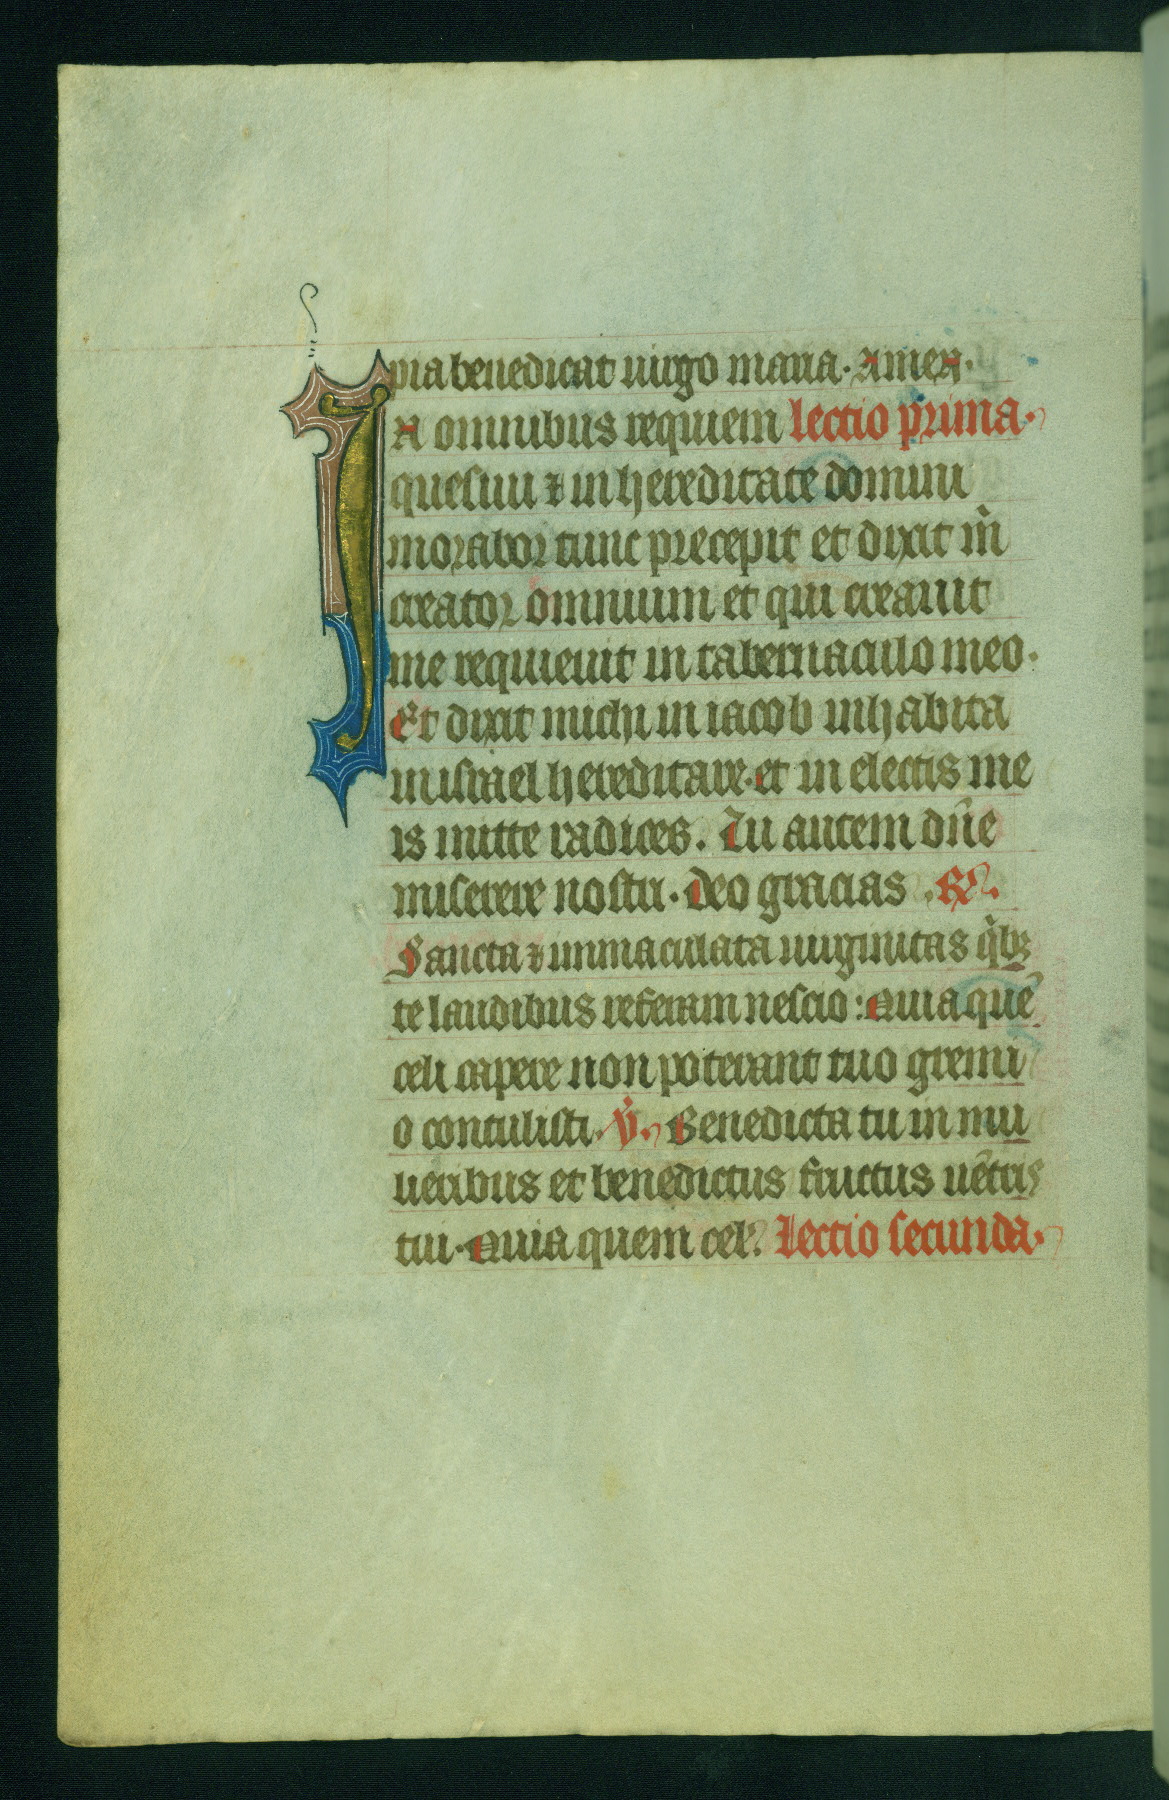 pia benedicat uirgo maria. Amen.
IN omnibus requiem lectio prima.
quesiui ⁊ in hereditate domini
morabor tunc precepit et dixit m̄
creator omnium et qui creauit
me requieuit in tabernaculo meo.
Et dixit michi in iacob inhabita
in israel hereditare. et in electis me
is mitte radices. Tu autem dn̄e
miserere nostri. Deo gracias. R.
Sancta ⁊ immaculata uirginitas q̄bꝫ
te laudibus referam nescio: Quia quē
celi capere non poterant tuo gremi
o contulisti. V. Benedicta tu in mu
lieribus et benedictus fructus uētris
tui. Quia quem cel. Lectio secunda.